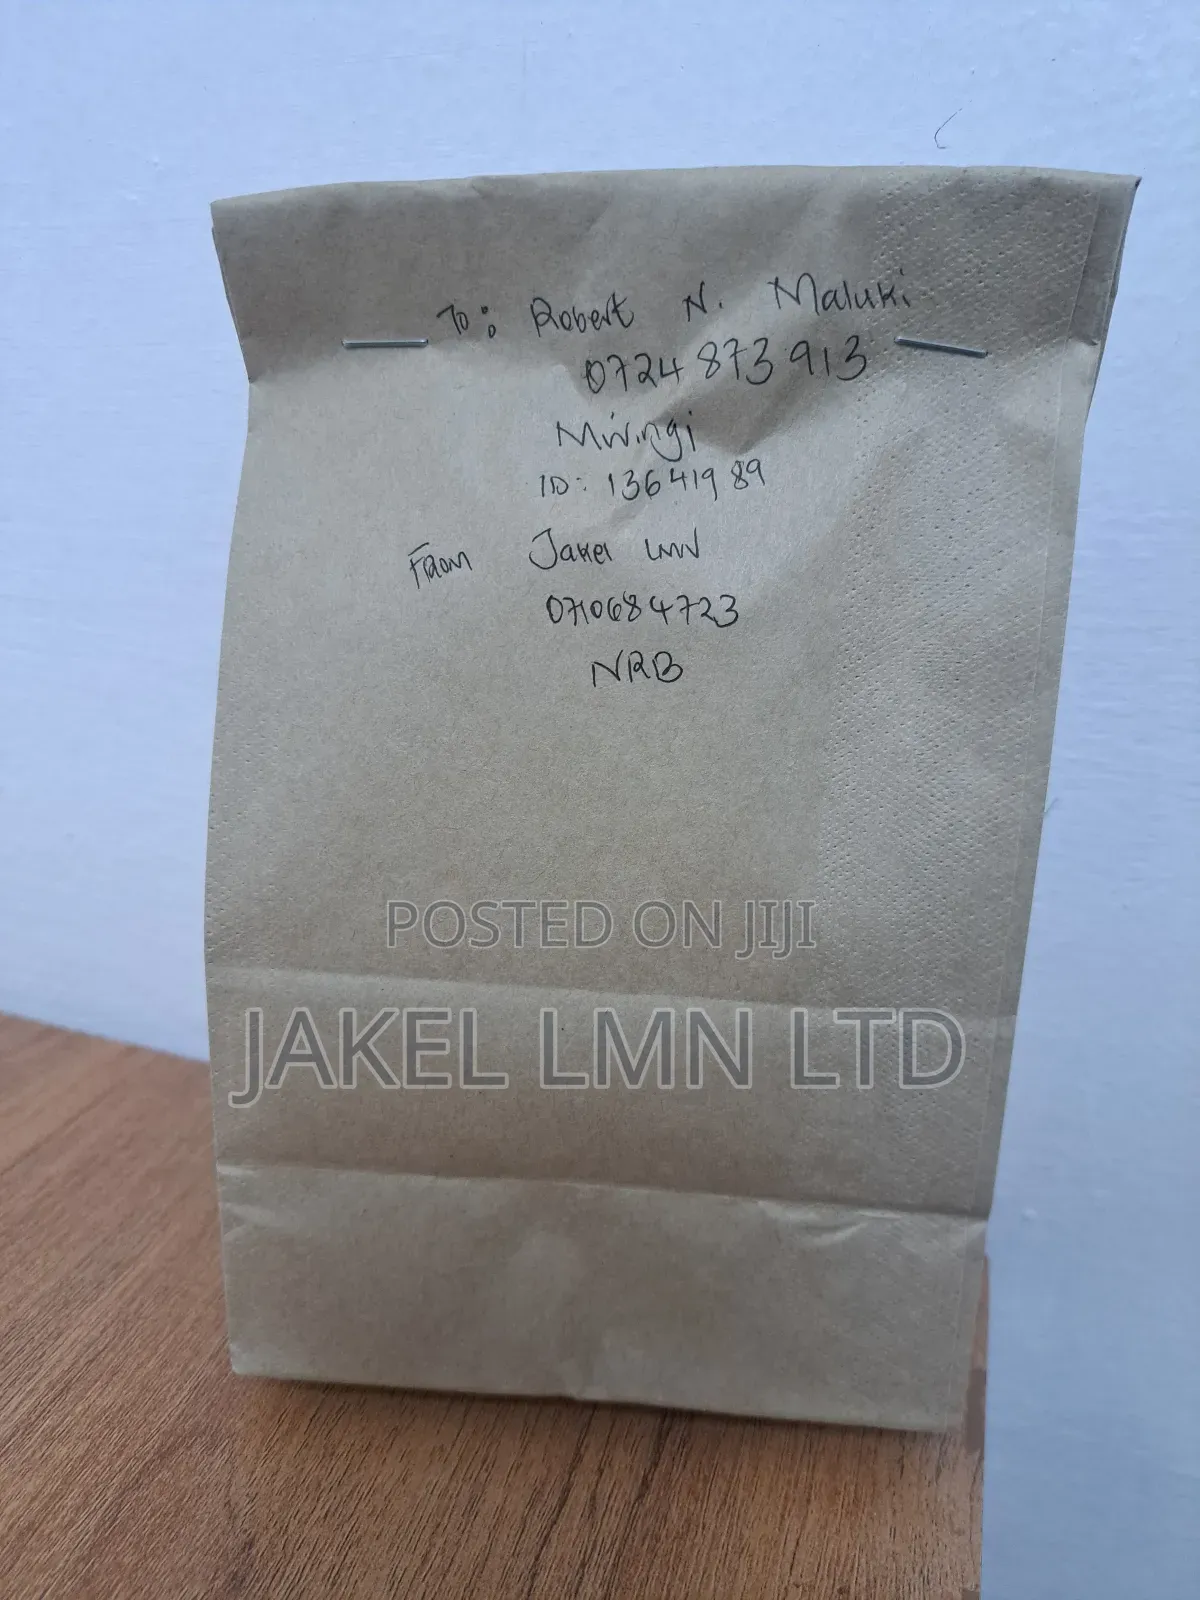 To: Robert N. Maluki
0724 873 913
Mwingi
ID: 13641989
From Jakel LMN
0710684723
NRB
POSTED ON JIJI
JAKEL LMN LTD